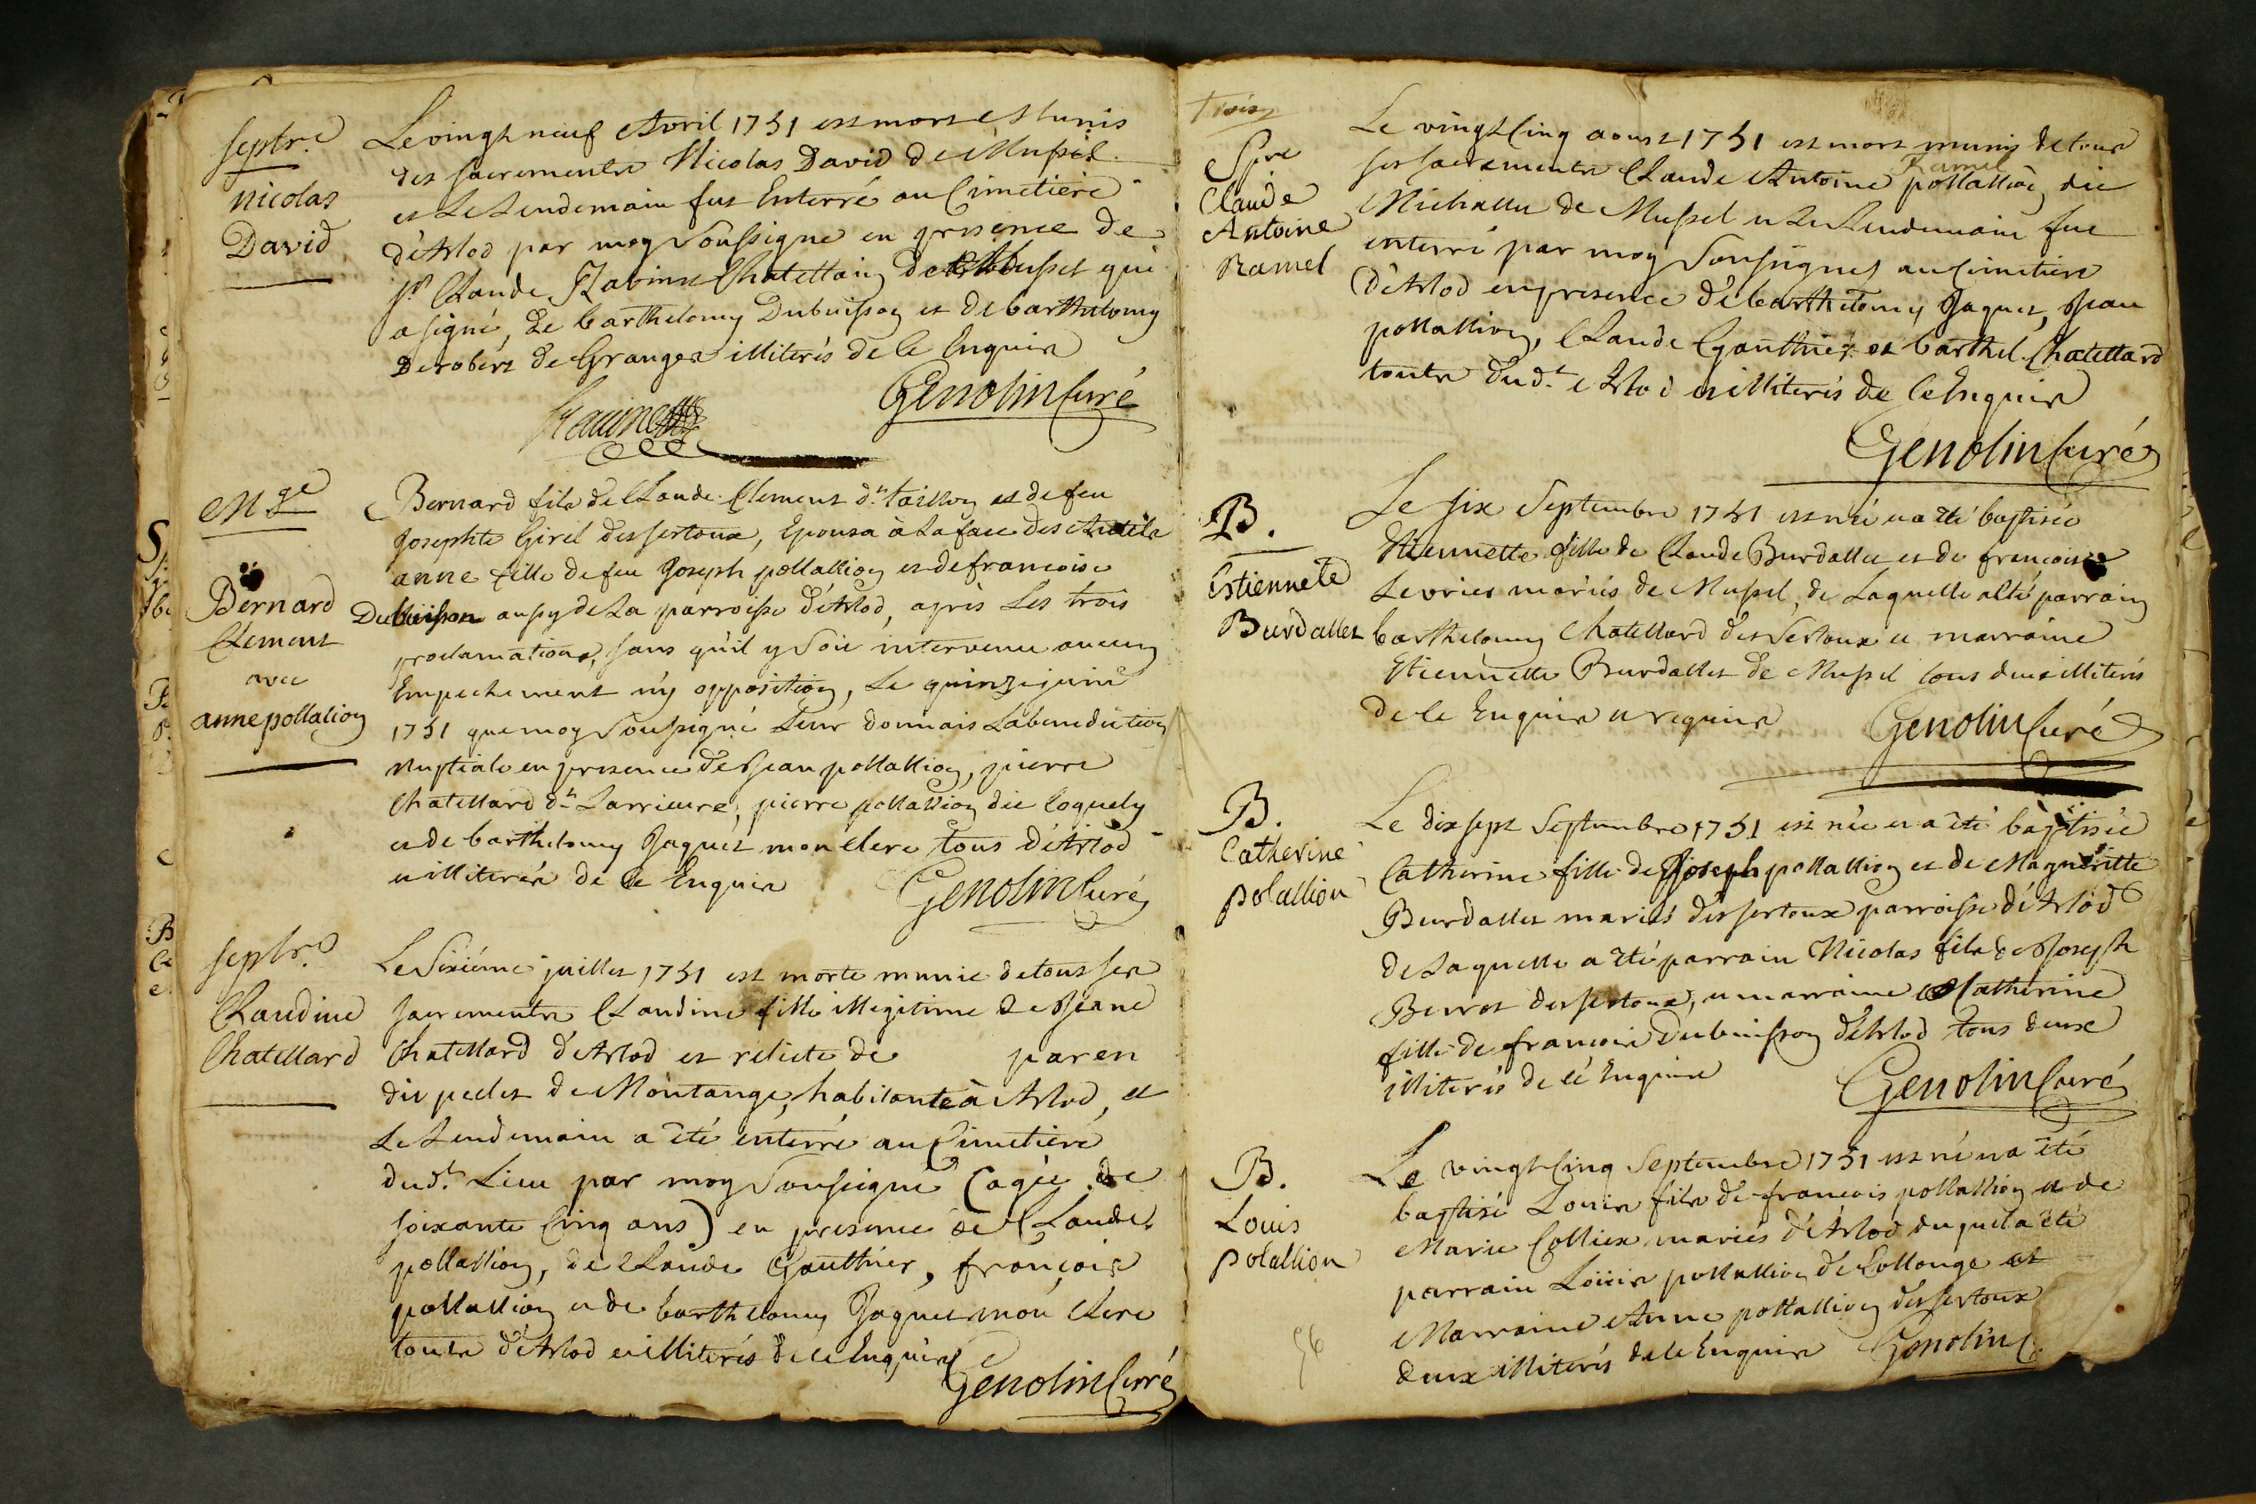 septre
nicolas
David
Le vingt neuf Avril 1751 est mort et Munis
des sacrements Nicolas David de Mussel
et Le Lendemain fut Enterré au Cimetiere
d'Arlod par moy Soussigné en presence de
Sr Claude Ravinet Chatellain de Mussel qui
a signé, de barthelomy Dubuisson et de barthelomy
Derobert de Granges illiterés de ce Enquis
Ravinet
Genolin Curé
Mge
Bernard
Clement
avec
anne pollalion
Bernard fils de Claude Clement dt taillon et de feu
Josephte Girel des sertoux, Epousa à La face des Autels
anne fille de feu Joseph pollallion et de francoise
Dubuisson aussy de La parroisse d'Arlod, après Les trois
proclamations, sans qu'il y Soit intervenu aucun
Empechement n'y opposition, Le quinze juin
1751 que moy Soussigné Leur donnais La benediction
Nuptiale en presence de Jean pollallion, pierre
Chatellard dt Larrieure, pierre pollallion dit Coquely
et de barthelomy Jaquet mon clerc tous d'Arlod
et illiterés de ce Enquis
Genolin Curé
septre
Claudine
Chatellard
Le Sixiéme juillet 1751 est morte munie de tous ses
sacrements Claudine fille illegitime de Jeane
Chatellard d'Arlod et relicte de paren
dit peclet de Montange, habitante à Arlod, et
Le Lendemain a été enterré au Cimetiere
dudt Lieu par moy Soussigné (agée de
soixante Cinq ans) en presence de Claude
pollallion, de Claude Gauthier, françois
pollallion et de barthelomy Jaquet mon clerc
touts d'Arlod et illiterés de ce Enquis
Genolin Curé
trois
Spre
Claude
Antoine
Ramel
Le vingt Cinq aoust 1751 est mort munis de tous
ses sacrements Claude Antoine pollallion dit
Ramel
Michallet de Mussel et Le Lendemain fut
enterré par moy Soussigné au Cimetiere
d'Arlod en presence de barthelomy Jaquet, Jean
pollallion, Claude Gauthier et barthel. Chatellard
touts dudt Arlod et illiterés de ce Enquis
Genolin Curé
B.
Estiennete
Burdallet
Le six Septembre 1751 est née et a été baptisée
Etiennette fille de Claude Burdallet et de francoise
Levrier mariés de Mussel, de Laquelle a été parrain
barthelomy Chatellard des Sertoux et marraine
Etiennette Burdallet de Mussel tous deux illiterés
de ce Enquis et requis
Genolin Curé
B.
Catherine
polallion
Le dix sept Septembre 1751 est née et a été baptisée
Catherine fille de Joseph pollallion et de Margueritte
Burdallet mariés des sertoux parroisse d'Arlod
de Laquelle a été parrain Nicolas fils de Joseph
Berrot des sertoux, et marraine Catherine
fille de francois Dubuisson d'Arlod tous deux
illiterés de ce Enquis
Genolin Curé
B.
Louis
polallion
Le vingt Cinq Septembre 1751 est né et a été
baptisé Louis fils de francois pollallion et de
Marie Colliex mariés d'Arlod duquel a été
parrain Loüis pollallion de Collonge et
Marraine Anne pollallion des sertoux
deux illiterés de ce Enquis
Genolin C